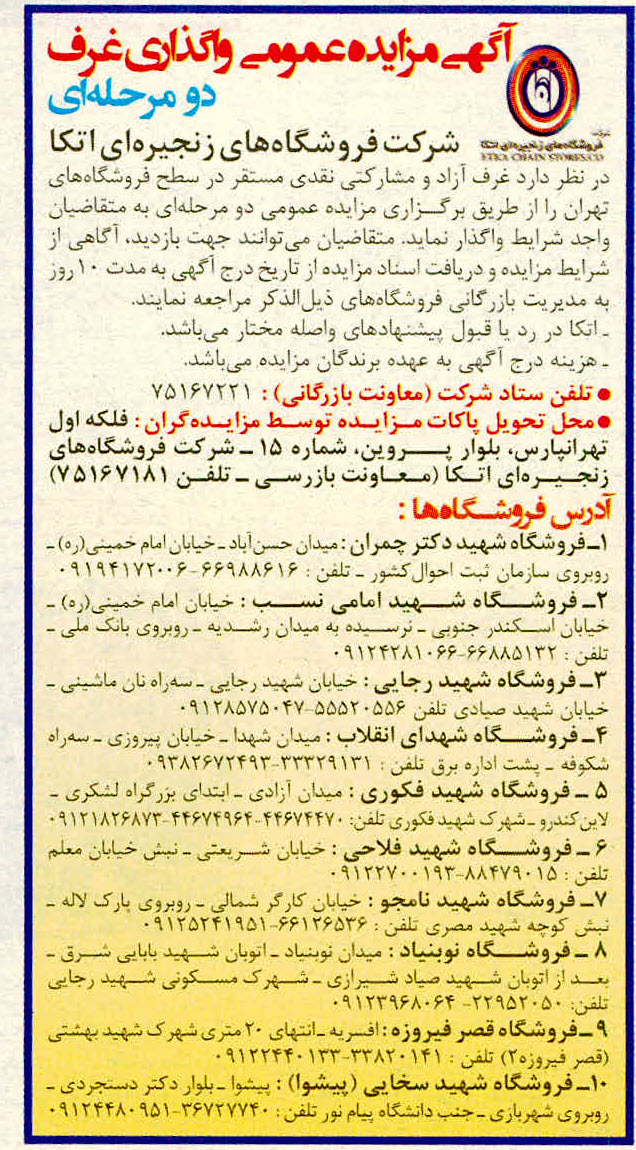 آگهی مزایده عمومی واگذاری غرف
دو مرحله‌ای
شرکت
فروشگاه‌های زنجیره‌ای اتکا
ETKA CHAIN STORES.CO
شرکت فروشگاه‌های زنجیره‌ای اتکا
در نظر دارد غرف آزاد و مشارکتی نقدی مستقر در سطح فروشگاه‌های
تهران را از طریق برگـزاری مزایده عمومی دو مرحله‌ای به متقاضیان
واجد شرایط واگذار نماید. متقاضیان می‌توانند جهت بازدید، آگاهی از
شرایط مزایده و دریافت اسناد مزایده از تاریخ درج آگهی به مدت ۱۰ روز
به مدیریت بازرگانی فروشگاه‌های ذیل‌الذکر مراجعه نمایند.
ـ اتکا در رد یا قبول پیشنهادهای واصله مختار می‌باشد.
ـ هزینه درج آگهی به عهده برندگان مزایده می‌باشد.
● تلفن ستاد شرکت (معاونت بازرگانی) : ۷۵۱۶۷۲۲۱
● محل تحویل پاکات مـزایـده توسط مزایـده‌گران : فلکه اول
تهرانپارس، بلوار پـــرویـن، شماره ۱۵ ـ شرکت فروشگاه‌های
زنجیـره‌ای اتـکـا (معـاونت بازرسـی ـ تلفـن ۷۵۱۶۷۱۸۱)
آدرس فروشـگاه‌ها :
۱ـ فروشگاه شهید دکتر چمران : میدان حسن‌آباد ـ خیابان امام خمینی(ره) ـ
روبروی سازمان ثبت احوال کشور ـ تلفن : ۶۶۹۸۸۶۱۶-۰۹۱۹۴۱۷۲۰۰۶
۲ـ فروشـــگاه شــهید امامی نســب : خیابان امام خمینی(ره) ـ
خیابان اسـکندر جنوبی ـ نرسیده به میدان رشـدیه ـ روبروی بانک ملی ـ
تلفن : ۶۶۸۸۵۱۳۲-۰۹۱۲۴۲۸۱۰۶۶
۳ـ فروشگاه شهید رجایی : خیابان شهید رجایی ـ سه‌راه نان ماشینی ـ
خیابان شهید صیادی تلفن ۵۵۵۲۰۵۵۶-۰۹۱۲۸۵۷۵۰۴۷
۴ـ فروشـــگاه شهدای انقلاب : میدان شهدا ـ خیابان پیروزی ـ سه‌راه
شکوفه ـ پشت اداره برق تلفن : ۳۳۳۲۹۱۳۱-۰۹۳۸۲۶۷۲۴۹۳
۵ ـ فروشـــگاه شهید فکوری : میدان آزادی ـ ابتدای بزرگراه لشکری ـ
لاین‌کندرو ـ شهرک شهید فکوری تلفن: ۴۴۶۷۴۴۷۰-۴۴۶۷۴۹۶۴-۰۹۱۲۱۸۲۶۸۷۳
۶ ـ فروشــــگاه شهید فلاحی : خیابان شـریعتی ـ نبش خیابان معلم
تلفن : ۸۸۴۷۹۰۱۵-۰۹۱۲۲۷۰۰۱۹۳
۷ـ فروشگاه شهید نامجو : خیابان کارگر شمالی ـ روبروی پارک لاله ـ
نبش کوچه شهید مصری تلفن : ۶۶۱۲۶۵۳۶-۰۹۱۲۵۲۴۱۹۵۱
۸ ـ فروشـــگاه نوبنیاد : میدان نوبنیاد ـ اتوبان شـهید بابایی شـرق ـ
بعـد از اتوبان شـهید صیاد شـیرازی ـ شـهرک مسـکونی شـهید رجایی
تلفن: ۲۲۹۵۲۰۵۰-۰۹۱۲۳۹۶۸۰۶۴
۹ـ فروشگاه قصر فیروزه : افسریه ـ انتهای ۲۰ متری شهرک شهید بهشتی
(قصر فیروزه۲) تلفن : ۳۳۸۲۰۱۴۱-۰۹۱۲۲۴۴۰۱۳۳
۱۰ـ فروشگاه شهید سخایی (پیشوا) : پیشوا ـ بلوار دکتر دستجردی ـ
روبروی شهربازی ـ جنب دانشگاه پیام نور تلفن : ۳۶۷۲۷۷۴۰-۰۹۱۲۴۴۸۰۹۵۱